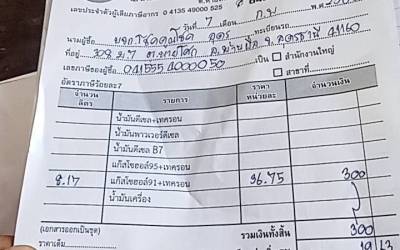 เลขประจำตัวผู้เสียภาษีอากร 0 4135 49000 525
วันที่ 7 เดือน ก.พ
นามผู้ซื้อ บจก.โชคคูณโชค อุดร ทะเบียนรถ
ที่อยู่ 308 ม.7 อ.บ้านผือ จ.อุดรธานี 41160
เลขภาษีของผู้ซื้อ เป็น สำนักงานใหญ่
สาขาที่
อัตราภาษีร้อยละ7
จำนวนลิตร รายการ ราคาหน่วยละ จำนวนเงิน
น้ำมันดีเซล+เทครอน
น้ำมันพาวเวอร์ดีเซล
น้ำมันดีเซล B7
แก๊สโซฮอล์95+เทครอน
8.17 แก๊สโซฮอล์91+เทครอน 36.75 300
น้ำมันเครื่อง
(เอกสารออกเป็นชุด) รวมเงินทั้งสิ้น 300
ราคาเดิม 19 63